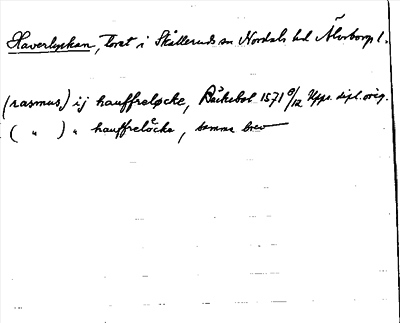 Haverlyckan, torst i Skålleruds sn Nordals hd Älvsborgs l.
(rasmus) ij hauffreløcke, Bäckebol 1571 9/12 Upps. dipl. orig.
( " ) " hauffrelöcke, samma brev